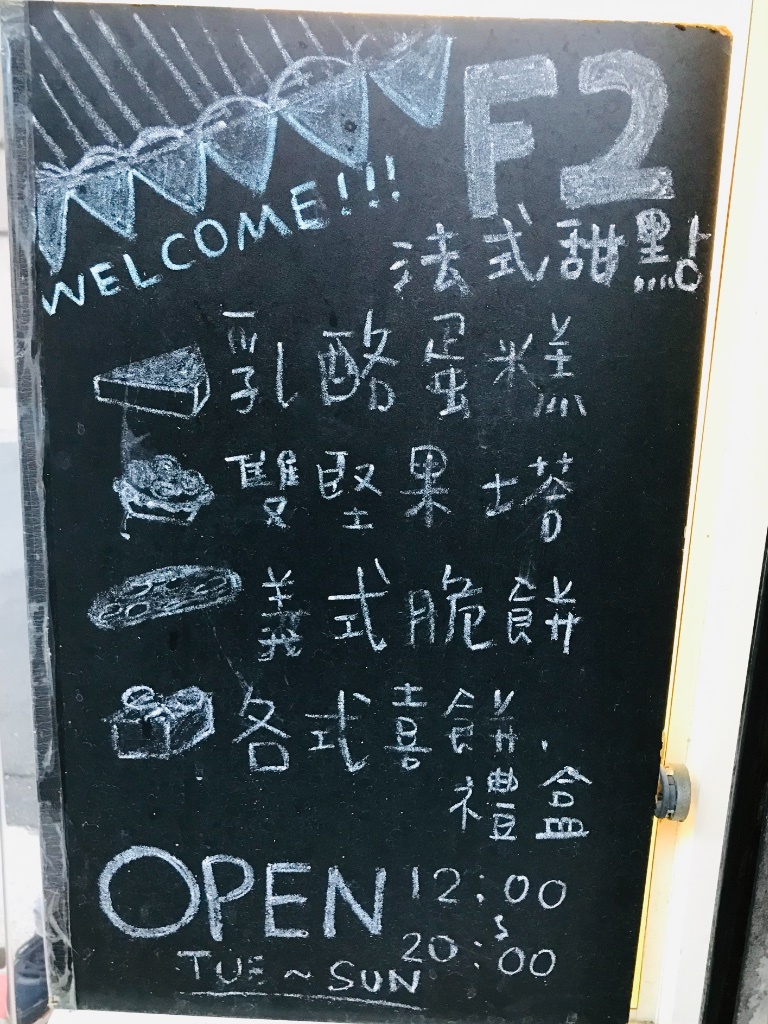 F2
WELCOME!!!
法式甜點
乳酪蛋糕
雙堅果塔
義式脆餅
各式喜餅、
禮盒
OPEN 12:00
~
20:00
TUE ~ SUN